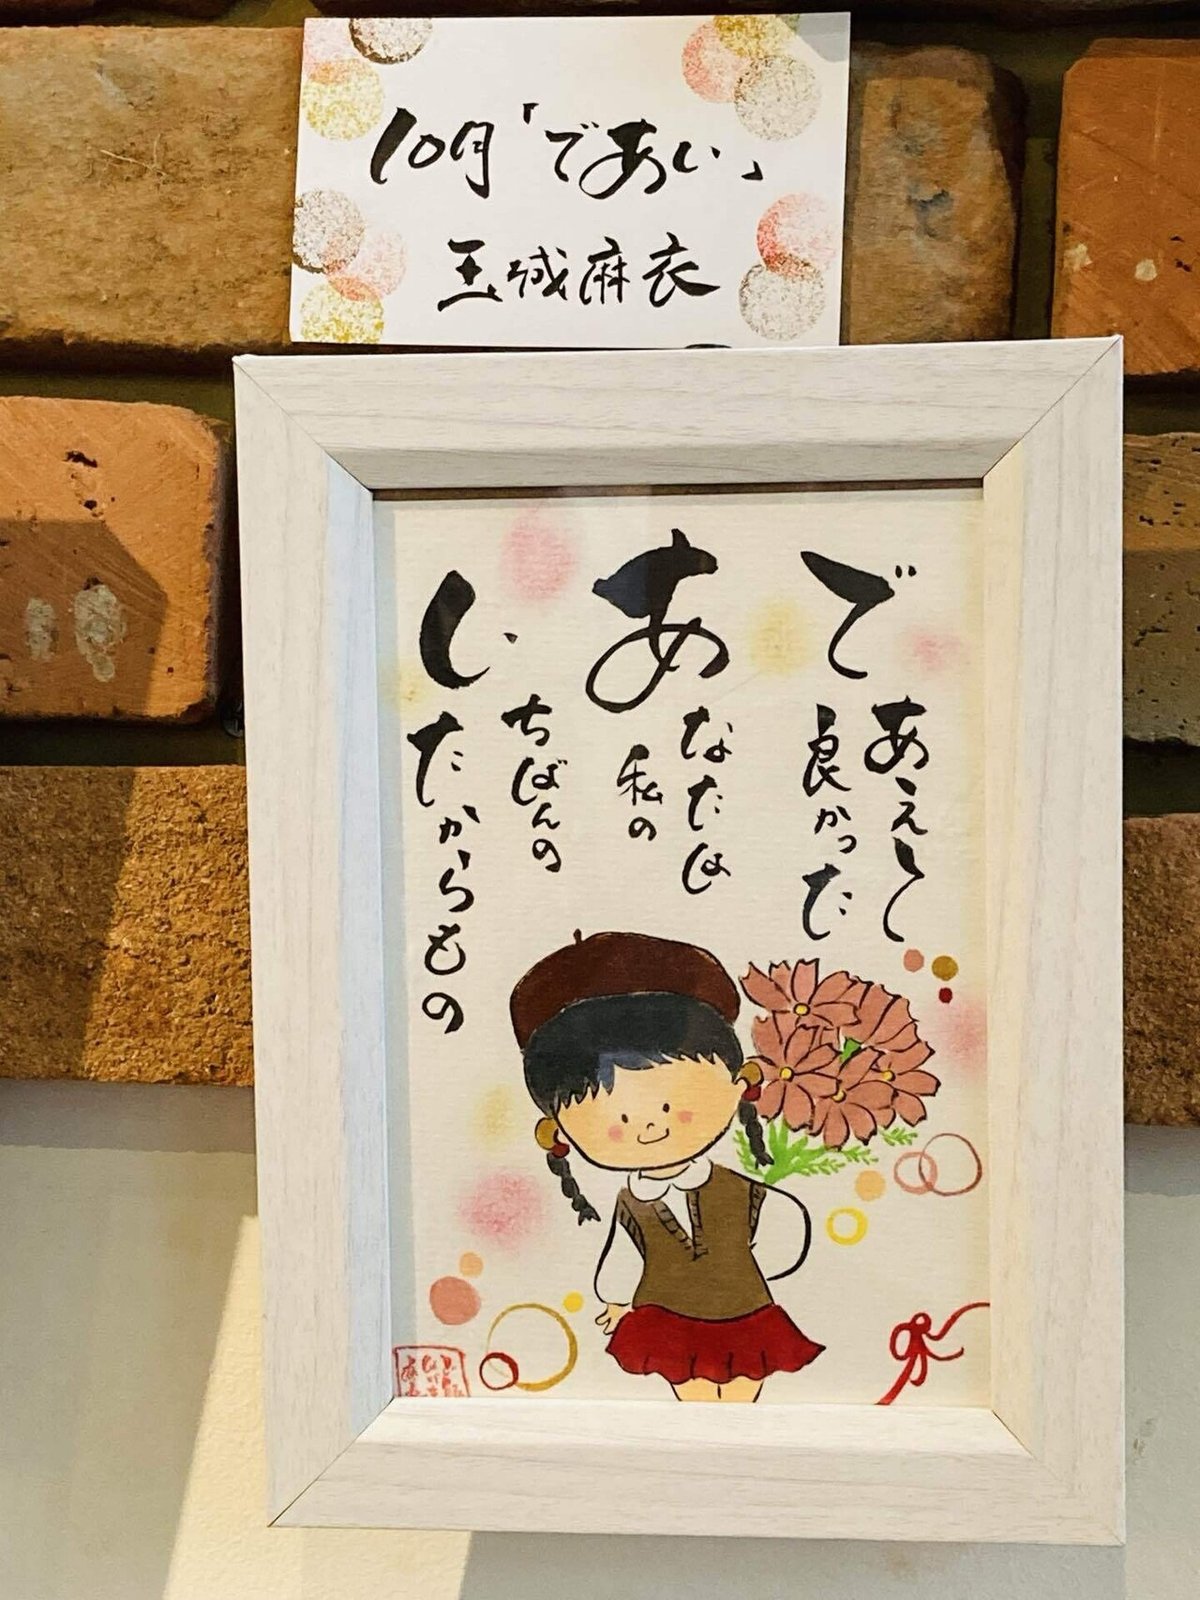 10月「であい」
玉城麻衣
であえて
良かった
あなたは
私の
いちばんの
たからもの